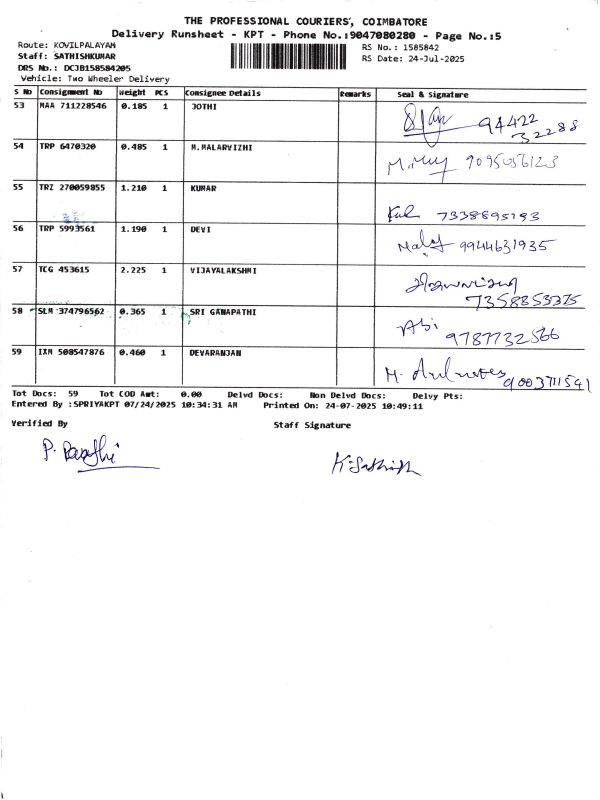 THE PROFESSIONAL COURIERS', COIMBATORE
Delivery Runsheet - KPT - Phone No.:9047080280 - Page No.:5
Route: KOVILPALAYAM
Staff: SATHISHKUMAR
DRS No.: DCJB158584205
Vehicle: Two Wheeler Delivery
RS No.: 1585842
RS Date: 24-Jul-2025
S No Consignment No Weight PCS Consignee Details Remarks Seal & Signature
53 MAA 711228546 0.185 1 JOTHI 94422 32288
54 TRP 6470320 0.485 1 M.MALARVIZHI
55 TRZ 270059855 1.210 1 KUMAR 7338895193
56 TRP 5993561 1.190 1 DEVI 9944631935
57 TCG 453615 2.225 1 VIJAYALAKSHMI 7358853375
58 SLM 374796562 0.365 1 SRI GANAPATHI Abi 9787732566
59 IXM 508547876 0.460 1 DEVARANJAN 9003711541
Tot Docs: 59 Tot COD Amt: 0.00 Delvd Docs: Non Delvd Docs: Delvy Pts:
Entered By :SPRIYAKPT 07/24/2025 10:34:31 AM Printed On: 24-07-2025 10:49:11
Verified By Staff Signature
K. Sathish